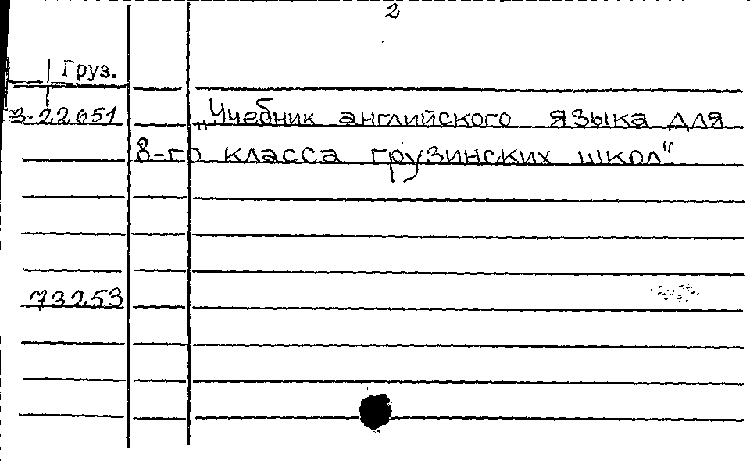 2
Груз.
3-22651
„Учебник английского языка для
8-го класса грузинских школ“
73253